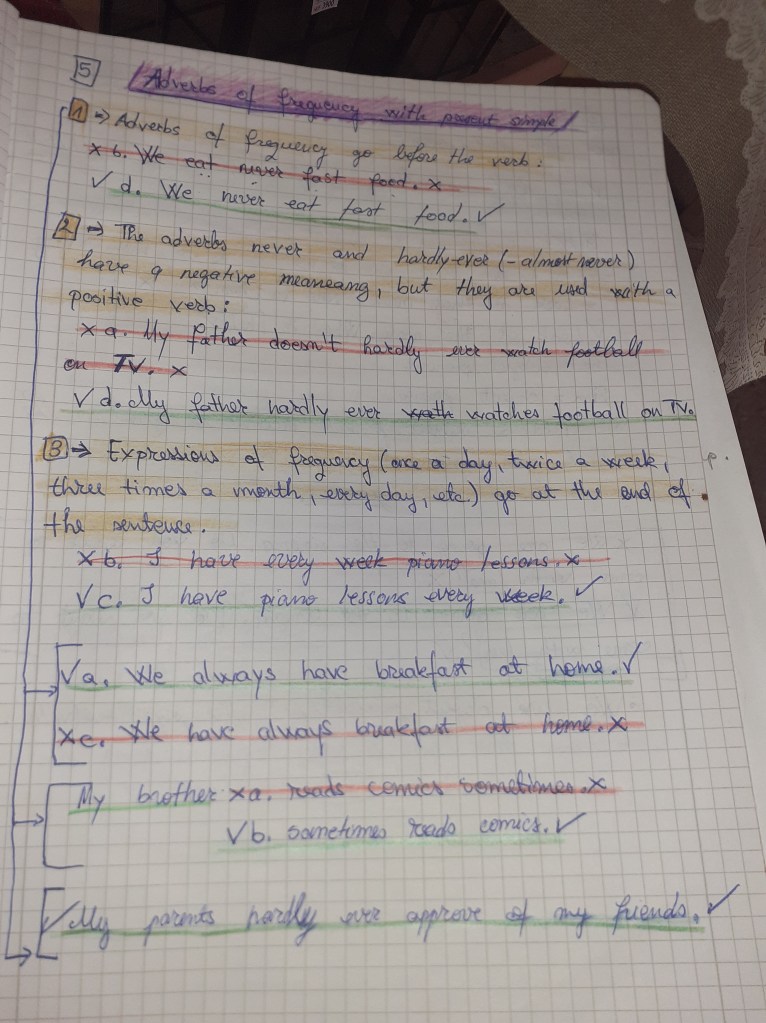 5 Adverbs of frequency with present simple
1 ⇒ Adverbs of frequency go before the verb:
x b. We eat never fast food. x
√ d. We never eat fast food. ✓
2 ⇒ The adverbs never and hardly-ever (-almost never)
have a negative meaneang, but they are used with a
positive verb:
x a. My father doesn't hardly ever watch football
on TV. x
√ d. My father hardly ever wath watches football on TV.
3 ⇒ Expressions of frequency (once a day, twice a week,
three times a month, every day, etc.) go at the end of
the sentence.
x b. I have every week piano lessons. x
√ c. I have piano lessons every week. ✓
√ a. We always have breakfast at home. ✓
x e. We have always breakfast at home. x
My brother x a. reads comics sometimes. x
√ b. sometimes reads comics. ✓
✓ My parents hardly ever approve of my friends. ✓